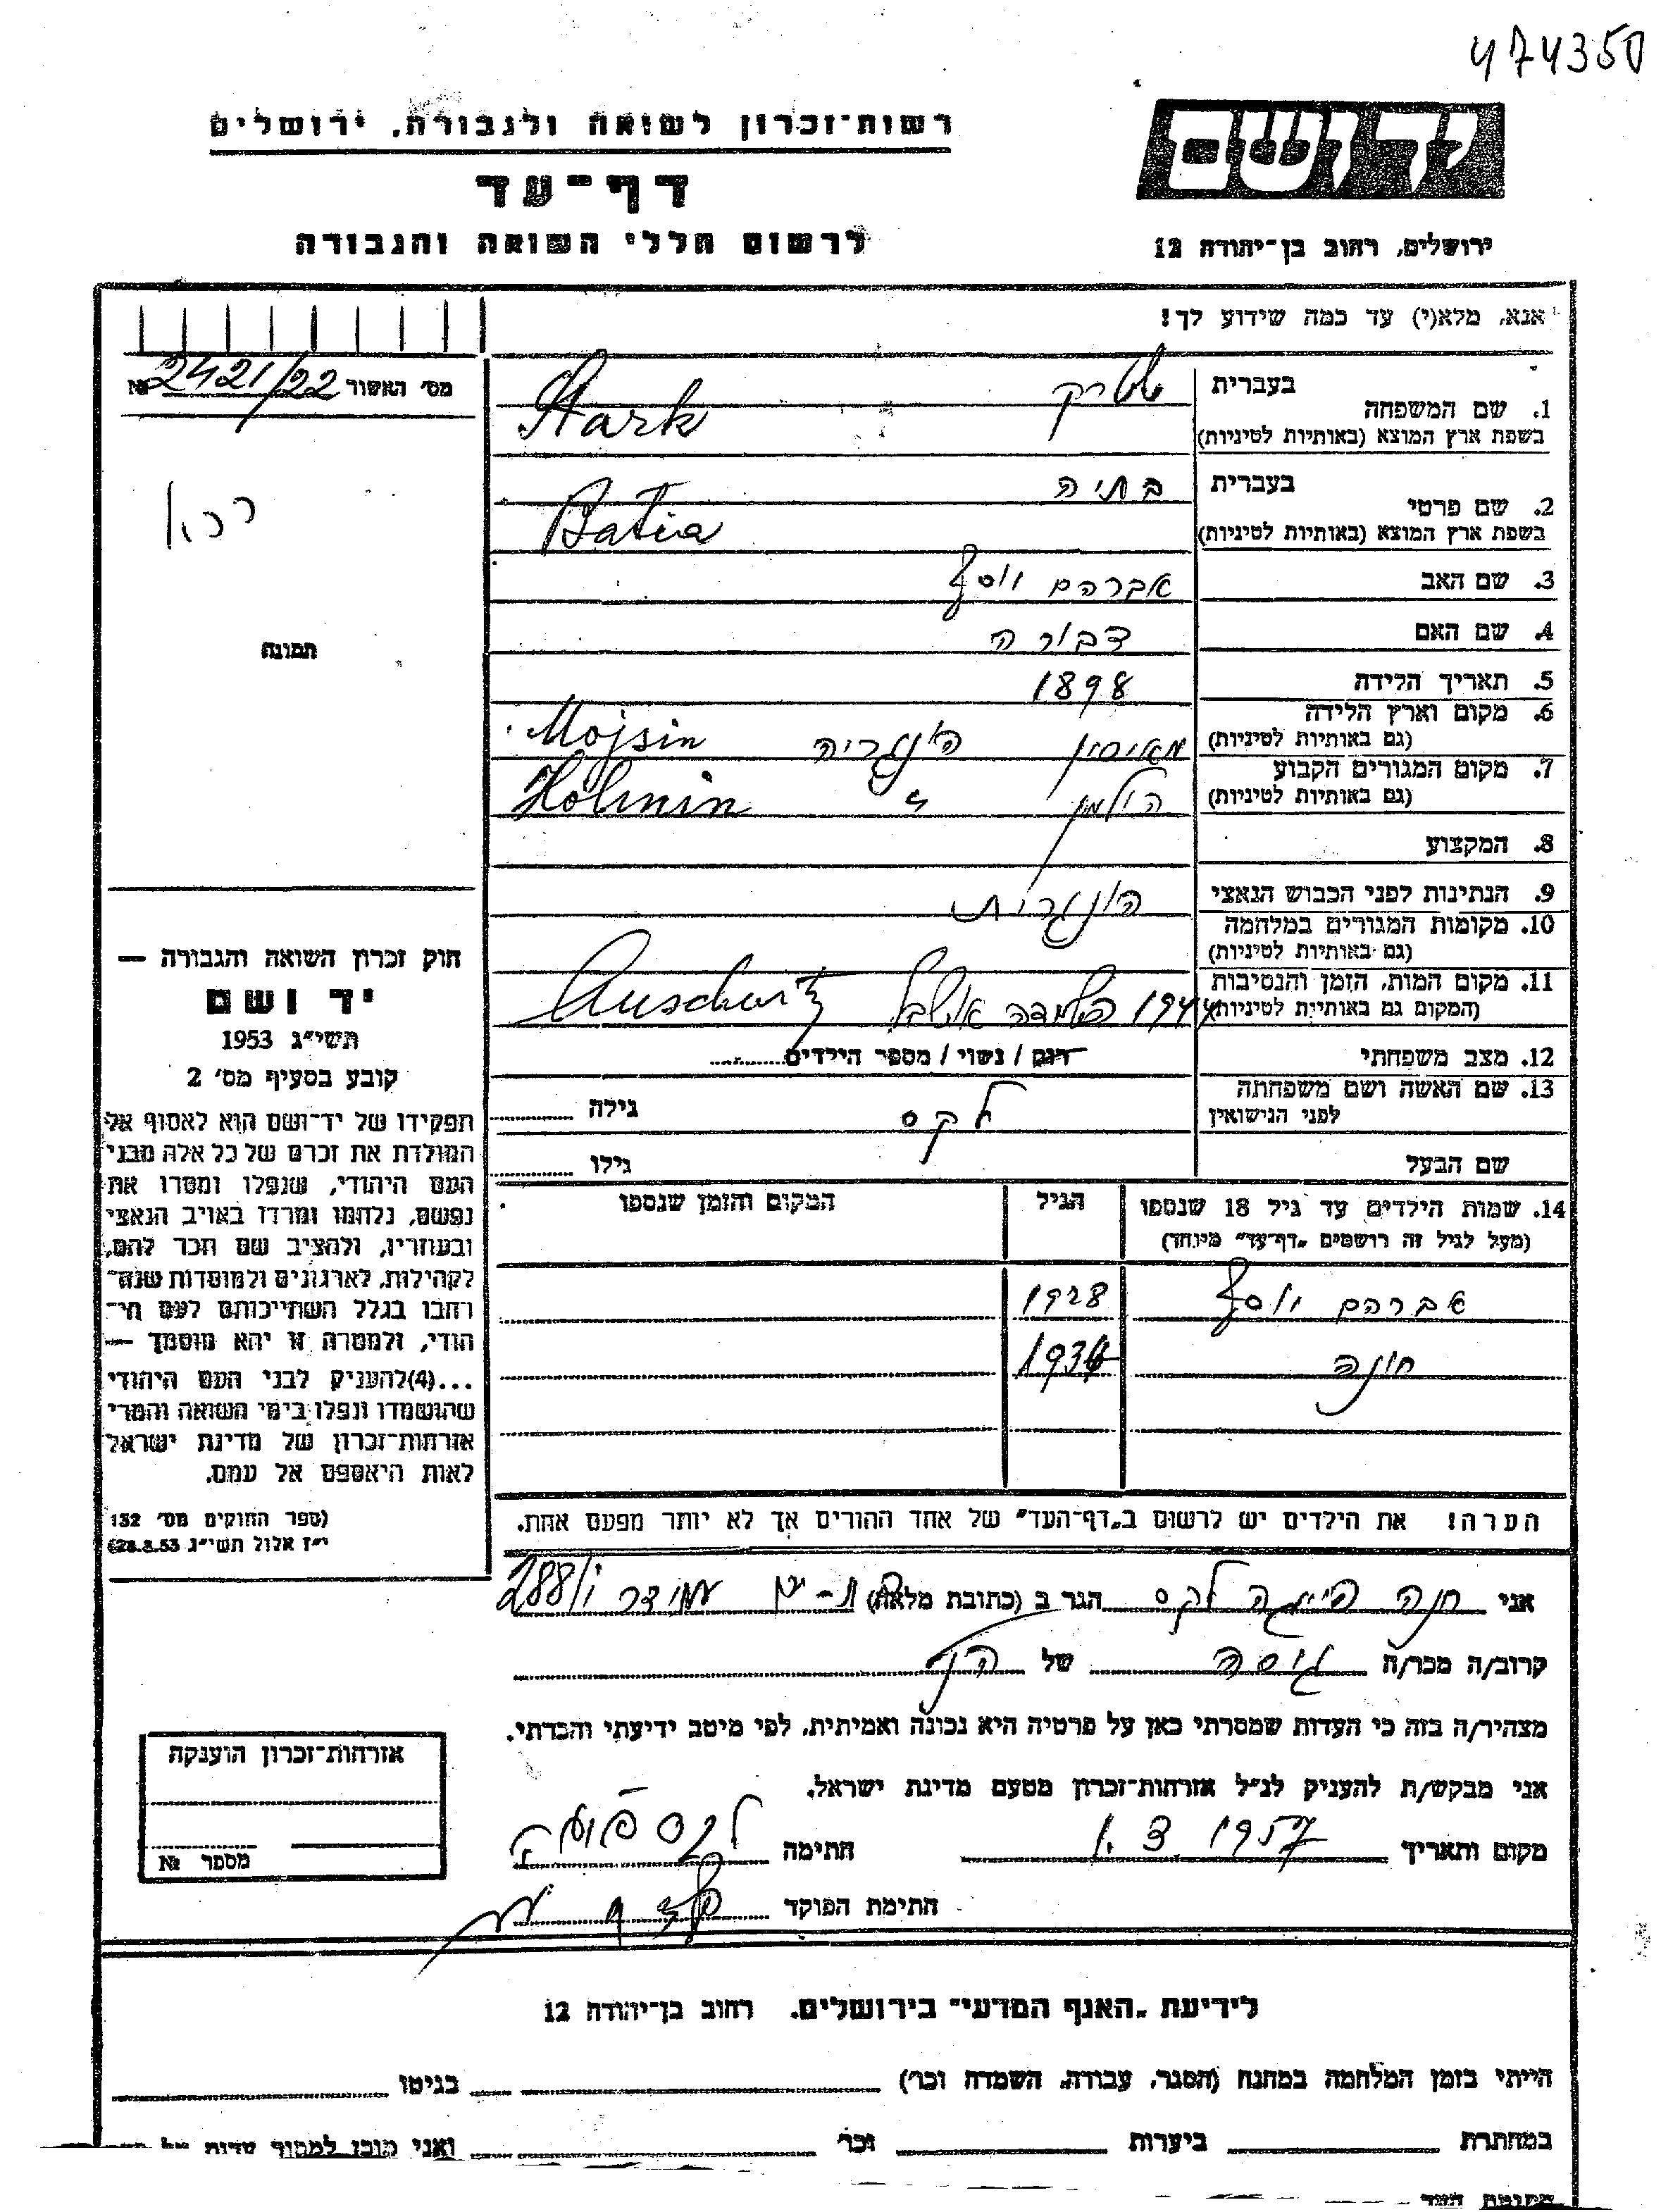 474350
יד ושם
רשות־זכרון לשואה ולגבורה, ירושלים
דף־עד
לרשום חללי השואה והגבורה
ירושלים, רחוב בן־יהודה 12
אנא, מלא(י) עד כמה שידוע לך!
מס׳ האשור 2421/22 №
תמונה
1. שם המשפחה בעברית שטרק
בשפת ארץ המוצא (באותיות לטיניות) Stark
2. שם פרטי בעברית בתיה
בשפת ארץ המוצא (באותיות לטיניות) Batia
3. שם האב אברהם יוסף
4. שם האם דבורה
5. תאריך הלידה 1898
6. מקום וארץ הלידה (גם באותיות לטיניות) מאיסין הונגריה Mojsin
7. מקום המגורים הקבוע (גם באותיות לטיניות) הולמין " Holmin
8. המקצוע
9. הנתינות לפני הכבוש הנאצי הונגרית
10. מקומות המגורים במלחמה (גם באותיות לטיניות)
11. מקום המות, הזמן והנסיבות (המקום גם באותיות לטיניות) 1944 Auschwitz
12. מצב משפחתי רווק / נשוי / מספר הילדים
13. שם האשה ושם משפחתה לפני הנישואין לקס גילה
שם הבעל גילו
14. שמות הילדים עד גיל 18 שנספו הגיל המקום והזמן שנספו
(מעל לגיל זה רושמים „דף־עד״ מיוחד)
אברהם יוסף 1928
חונה 1934
הערה! את הילדים יש לרשום ב„דף־העד״ של אחד ההורים אך לא יותר מפעם אחת.
חוק זכרון השואה והגבורה —
יד ושם
תשי״ג 1953
קובע בסעיף מס׳ 2
תפקידו של יד־ושם הוא לאסוף אל
המולדת את זכרם של כל אלה מבני
העם היהודי, שנפלו ומסרו את
נפשם, נלחמו ומרדו באויב הנאצי
ובעוזריו, ולהציב שם וזכר להם,
לקהילות, לארגונים ולמוסדות שנח־
רבו בגלל השתייכותם לעם הי־
הודי, ולמטרה זו יהא מוסמך —
...(4)להעניק לבני העם היהודי
שהושמדו ונפלו בימי השואה והמרי
אזרחות־זכרון של מדינת ישראל
לאות היאספם אל עמם.
(ספר החוקים מס׳ 132
י״ז אלול תשי״ג 28.8.53)
אני חנה לקס הגר ב (כתובת מלאה) עמידר 288/1
קרוב/ה מכר/ה גיסה של הנ״ל
מצהיר/ה בזה כי העדות שמסרתי כאן על פרטיה היא נכונה ואמיתית, לפי מיטב ידיעתי והכרתי.
אני מבקש/ת להעניק לנ״ל אזרחות־זכרון מטעם מדינת ישראל.
מקום ותאריך 1.3.1957 חתימה לקס
חתימת הפוקד
אזרחות־זכרון הוענקה
מספר №
לידיעת „האגף המדעי״ בירושלים, רחוב בן־יהודה 12
הייתי בזמן המלחמה במחנה (הסגר, עבודה, השמדה וכר׳) בגיטו
במחתרת ביערות וכר׳ ואני מוכן למסור עדות